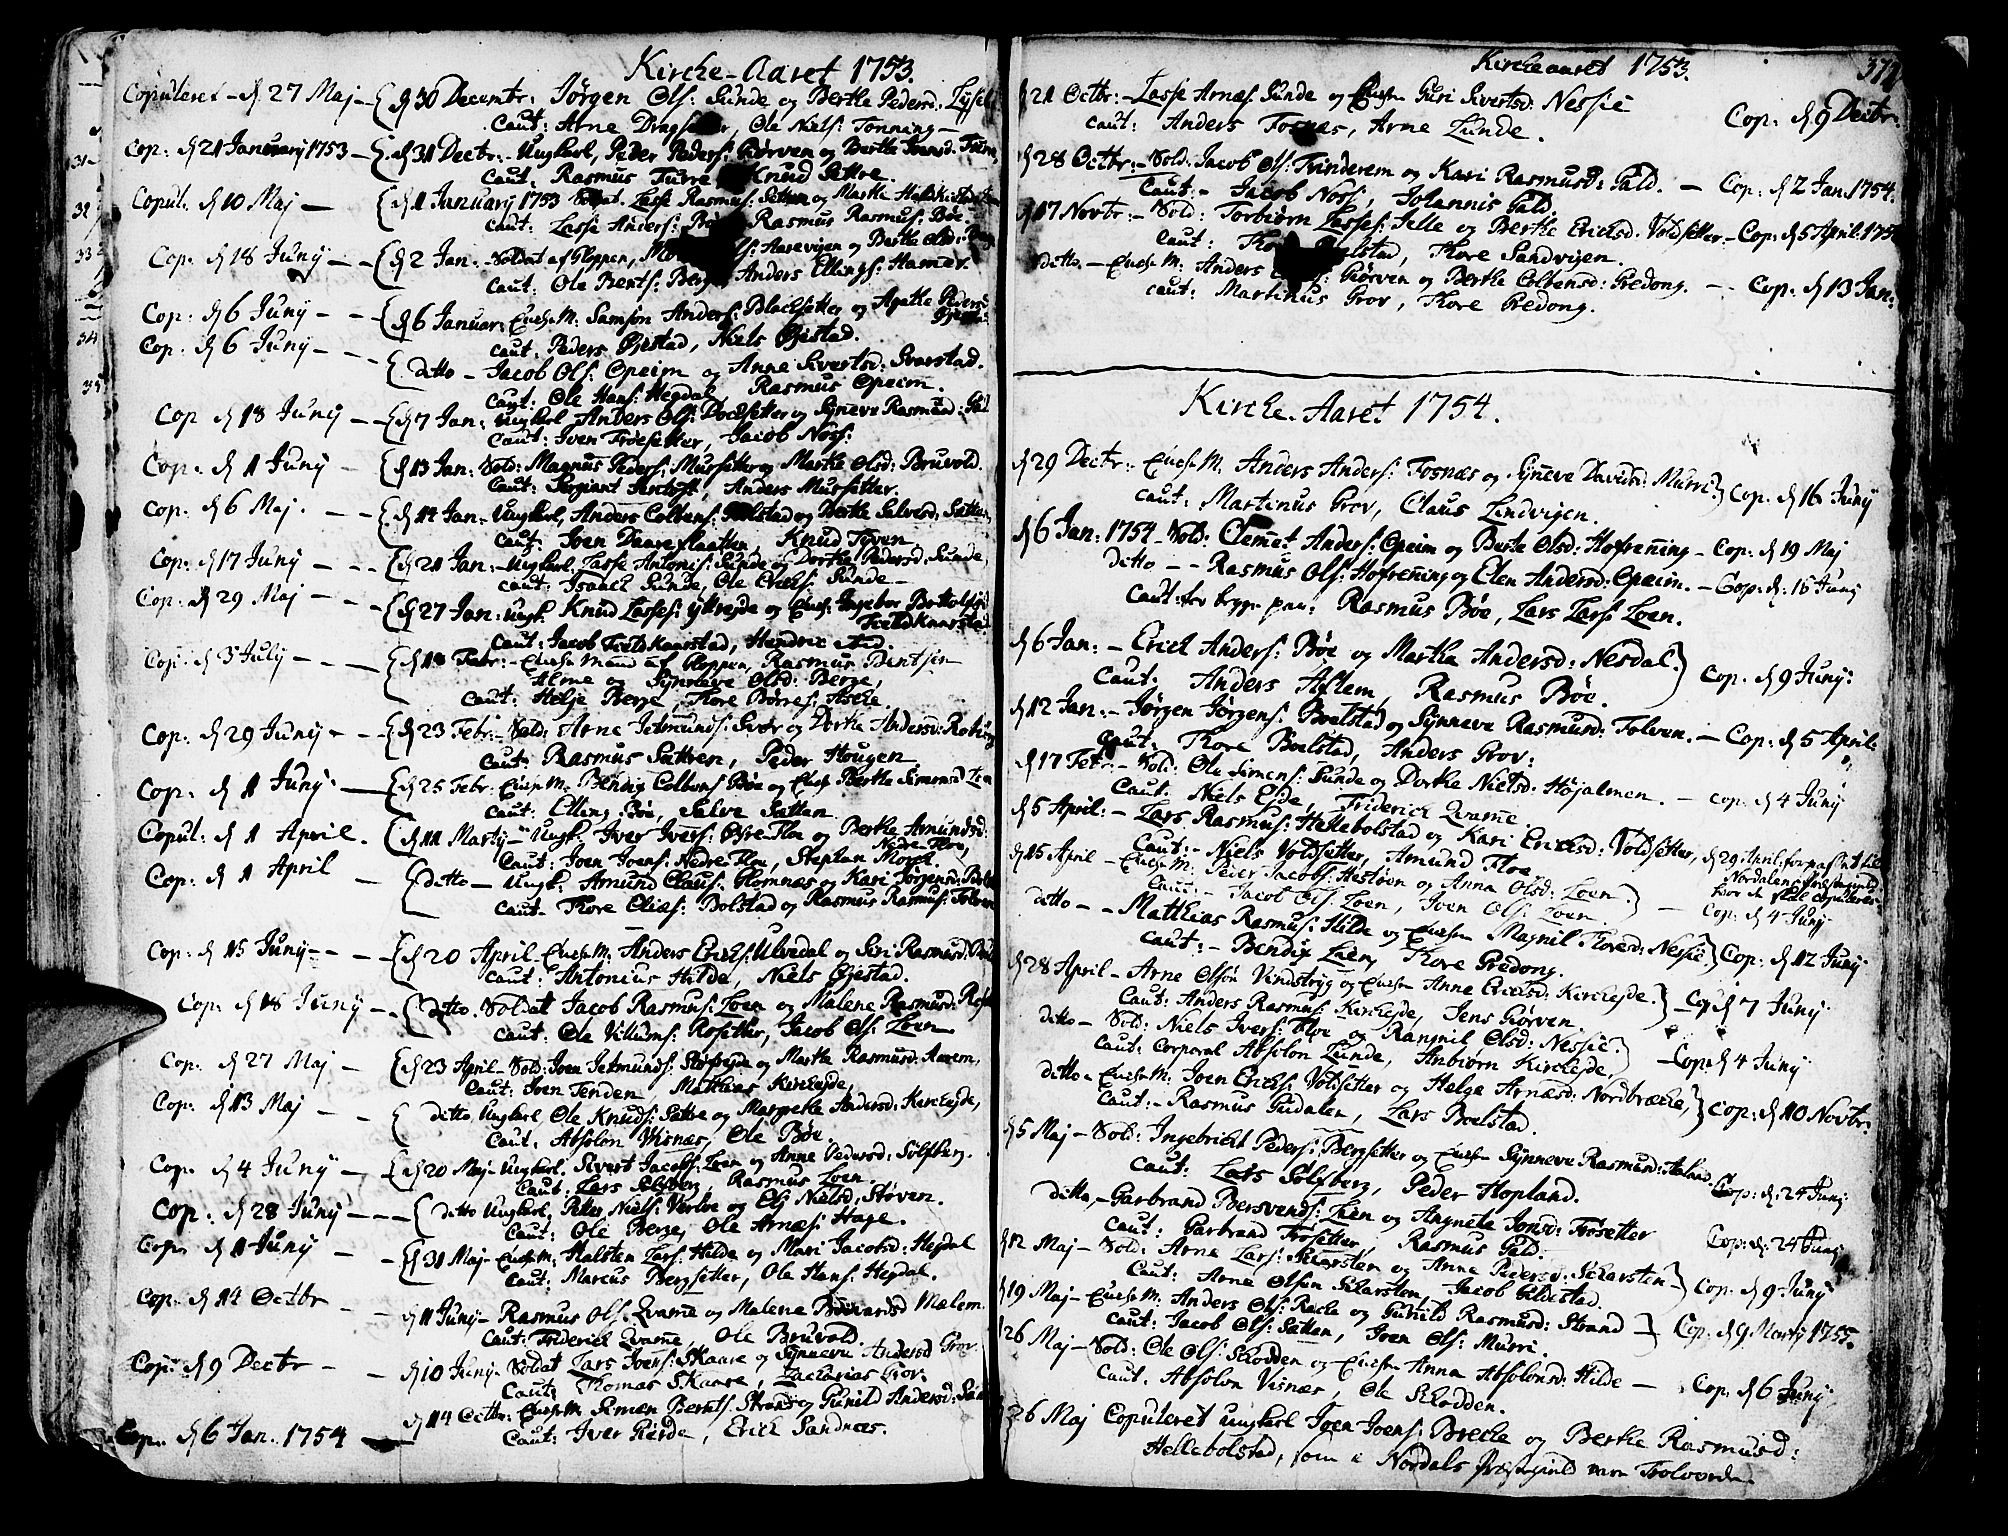 Kirche-Aaret 1753.
Copuleret – d 27 Maj – { d 30 Decembr: Jørgen Ols: Sunde og Berthe Peders:
Caut: Arne Dragsetter, Ole Niels: Tonning –
Cop: d 21 January 1753 – { d 31 Dectr: – Ungkarl, Peder Peders: Giørven og Berthe Joensd:
Caut: Rasmus Turre Knud Sættre.
Copul. d 10 Maj – { d 1 January 1753 Soldat. Lasse Rasmus: Sætten og Marthe
Caut: Lasse Anders: Bøe Rasmus Rasmus: Bøe.
Cop: d 18 Juny – – { d 2 Jan. – Soldat af Gloppen, Aasevigen og Berthe Olsd:
Caut: Ole Bents: Berge Anders Ellings: Hamer.
Cop: d 6 Juny – – { d 6 Januar: Enckem: Samson Anders: Blacksetter og Agathe Peders:
Øjestad
Caut. Peders Øjestad, Niels Øjestad.
Cop: d 6 Juny – – – { ditto – Jacob Ols: Opeim og Anne Sivertsd: Svarstad.
Caut: Ole Hans: Hegdal Rasmus Opeim.
Cop d 18 Juny – – { d 7 Jan: Ungkarl Anders Ols: og Synneve Rasmusd:
Caut: Iven Trøesetter, Jacob Noss:
Cop. d 11 Juny – { d 13 Jan: Sold: Magnus Peders: Mursetter og Marthe Olsd: Bruvold.
Caut: Sergiant, Anders Mursetter.
Cop. d 6 Maj. – – { d 14 Jan – Ungkarl, Anders Colbens: Bolstad og Berthe Salvesd: Sætten
Caut: Joen Daareslaatten, Knud Tyven
Cop. d 17 Juny – – – { d 21 Jan: – Ungkarl. Lasse Antonis: Sunde og Dorthe Pedersd: Sunde,
Caut: Isaack Sunde, Ole Ericks: Sunde –
Cop. d 29 Maj – – – { d 27 Jan: Ungk. Knud Lasses: Ytrejde og Enckem Ingebor
Fieldknarstad
Caut: Jacob Field Knarstad, Hendric
Cop. d 3 July – – – { d 18 Febr: – Enckemand af Gloppen, Rasmus Bentsen
Alme og Synneve Olsd: Berge,
Caut: Helje Berge, Thore Børres:
Cop: d 29 Juny – – { d 23 Febr: – Sold: Arne Jetmunds: Svør og Dorthe Andersd:
Caut: Rasmus Sættren, Peder Hougen
Cop. d 11 Juny – { d 25 Febr: Enckem. Bendig Colbens Bøe og Encke Berthe Simonsd
Caut: Elling Bøe, Salve Sættan
Copul: d 1 April. { d 11 Marty – Ungk. Iver Ivers: Øvre Floe og Berthe Amundsd.
Nedre Floe,
Caut: Joen Joens: Nedre Floe, Stephan
Cop. d 1 April – { ditto – Ungk: Amund Claus: Glomnæs og Kari Jørgensd:
Caut – Thore Elias: Bolstad og Rasmus Rasmus: Tolven
Cop: d 15 Juny – – – { d 20 April – Enckem: Anders Ericks: Ulvedal og Siri Rasmusd:
Caut: Antonius Hilde, Niels Øjestad.
Cop: d 18 Juny – – { ditto. Soldat Jacob Rasmus: Loen og Malene Rasmusd:
Caut: Ole Villums: Rosetter, Jacob Ols: Loen
Cop: d 27 Maj – { d 23 April – Sold: Joen Jetmunds: og Marthe Rasmusd: Aarem,
Caut: Joen Tenden, Matthias Kirchejde,
Cop. d 13 Maj – – { ditto Ungkarl Ole Knuds: Sættre og Margrethe Andersd: Kirchejde,
Caut: Absolon Visnæs, Ole Bøe
Cop. d 4 Juny – { d 20 Maj – Ungkarl. Sivert Jacobs: Loen og Anne Pedersd: Sølfberg.
Caut: Lars Sølfberg, Rasmus Loen
Cop: d 28 Juny – – – { ditto Ungkarl, Peter Niels: og Elj Nielsd: Støven.
Caut: Ole Berge, Ole Arnæs: Hage.
Cop. d 11 Juny – { d 31 Maj – Enckem: Halsten Lars: Hilde og Mari Jacobsd: Hegdal
Caut: Marcus Bergsetter, Ole Hans: Hegdal.
Cop. d 14 Octbr – – d 11 Juny – Rasmus Ols: Qvame og Malena Mælem.
Caut: Friderick Qvame, Ole Bruvold
Cop: d 9 Dectr – – d 10 Juny – Soldat Lars Joens: Skaare og Synneve Andersd Grov
Caut: Thomas Skaare, Zacharias Grov:
Cop. d 6 Jan. 1754 – d 14 Octbr: Enckem Simen Bernts: Strand og Gunild Andersd:
Caut: Iver Gierde, Erick Sandnes.
Kircheaaret 1753.
371
d 21 Octbr: – Lasse Arnæs: Sunde og Encken Guri Sivertsd: Nessie Cop: d 9 Dectr.
Caut: Anders Fosnæs, Arne Lunde.
d 28 Octbr: – Sold: Jacob Ols: Trinderem og Kari Rasmusd: Gald. – Cop: d 2 Jan. 1754.
Caut: – Jacob Noss, Johannis Gald
d 17 Novbr: – Sold: Torbiørn Lasses: Jelle og Berthe Ericksd. Voldsetter – Cop: d 5 April: 175
Caut: Thore Bolstad, Thore Sandvigen.
ditto. – Enckem. Anders Giørven og Berthe Colbensd: Gredong. – – Cop: d 13 Jan:
Caut: Martinus Grov, Thore Gredong.
Kirche-Aaret 1754.
d 29 Dectr: – Enckem. Anders Anders: Fosnæs og Synneve Davidsd: Murri } Cop. d 16 Juny
Caut: Martinus Grov, Claus Lindvigen.
d 6 Jan: 1754 – Sold: Clemet Anders: Opeim og Berte Olsd: Hofrening – Cop: d 19 Maj
ditto – – Rasmus Ols: Hofrening og Elen Andersd: Opeim. – Cop: d: 15 Juny
Caut: for begge par: Rasmus Bøe, Lars Lars: Loen.
d 6 Jan: – Erick Anders: Bøe og Martha Andersd: Nesdal } Cop. d 9 Juny:
Caut: Anders Aftem, Rasmus Bøe.
d 12 Jan: – Jørgen Jørgens: Boelstad og Synneve Rasmusd: Tolven. – Cop: d 5 April:
Caut: Thore Boelstad, Anders Grov:
d 17 Febr: – Sold: Ole Simens: Sunde og Dorthe Nielsd: Højalmen. – Cop: d 4 Juny
Caut: Niels Ejde, Friderick Qvame
d 5 April: – Lars Rasmus: Hellebolstad og Kari Ericksd: Voldsetter, d 29 April: forpasset til
Nordalens Præstegield
hvor de skal copuleres.
Caut: – Niels Voldsetter, Amund Floe
d 15 April – Enckem. Peter Jacobs: Hestøen og Anna Olsd: Loen } – Cop: d 4 Juny
Caut: – Jacob Ols: Loen, Joen Ols: Loen
ditto – – Matthias Rasmus: Hilde og Encken Magnil Thoresd: Nessie } Cop: d 12 Juny
Caut: – Bendig Loen, Thore Gredong.
d 28 April – Arne Olsøn Vindstryg og Encken Anne Ericksd: Kirchejde. } Cop d 7 Juny
Caut: Anders Rasmus: Kirchejde, Jens Giørven
ditto – Sold: Niels Ivers: Floe og Rangnil Olsd: Nessie } – Cop: d 4 Juny
Caut: Corporal Absolon Lunde, Anbiørn Kirchejde,
ditto – Enckem: Joen Ericks: Voldsetter og Helge Arnæsd: Nordbræcke, } Cop: d 10 Novbr:
Caut: – Rasmus Gudalen, Lars Boelstad.
d 5 Maj – Sold: Ingebricht Peders: Bergsetter og Encken Synneve Rasmusd: Aaland. – Cop: d: 24 Juny
Caut: Lars Sølfberg, Peder Hopland.
ditto, – Garbrand Bersvends: Loen og Angnete Jonsd: Trøsetter Cop: d: 24 Juny
Caut: Garbrand Trøsetter, Rasmus Gald.
d 12 Maj – Sold: Arne Lars: Skarsten og Anne Pedersd: Skarsten } Cop: d 9 Juny
Caut: Arne Olsen Skarsten, Jacob Gildestad.
d 19 Maj – Enckem: Anders Ols: Racke og Gunild Rasmusd: Strand } – Cop. d 9 Marty 1755.
Caut: Jacob Ols: Sætten, Joen Ols: Murri.
d 26 Maj – Sold: Ole Ols: Skodden og Encken Anna Absolonsd: Hilde – Cop: d 6 Juny
Caut: Absolon Visnæs, Ole Skodden.
d 26 Maj Copuleret Ungkarl Joen Joens: Brecke og Berthe Rasmusd:
Hellebolstad, som i Nordals Præstegield vare Trolovede.
31
32
33
34
35